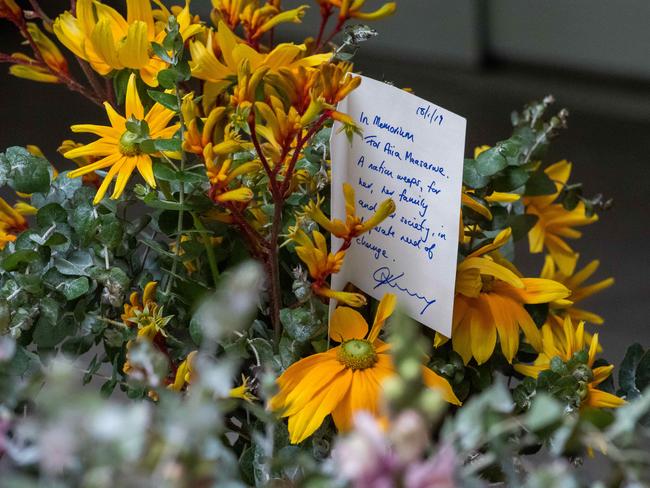 18/1/19
In Memoriam
For Aiia Maasarwe.
A nation weeps, for
her, her family
and society, in
need of
change.